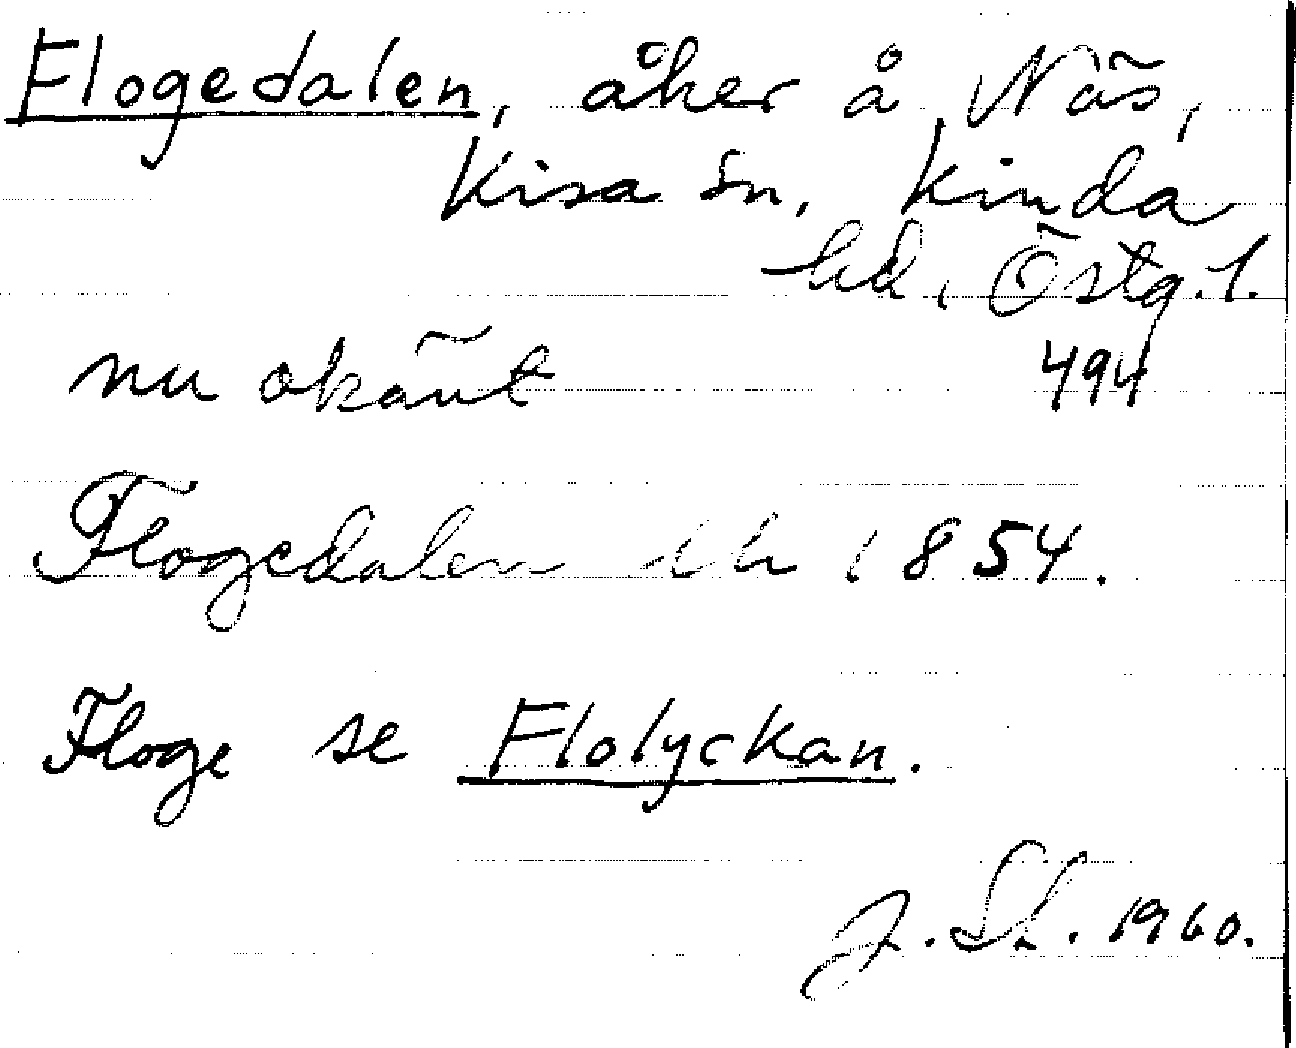 Flogedalen, åker å Näs,
Kisa sn, Kinda
hd, Östg. l.
nu okänt 494
Flogedalen lh 1854.
Floge se Flolyckan.
1960.